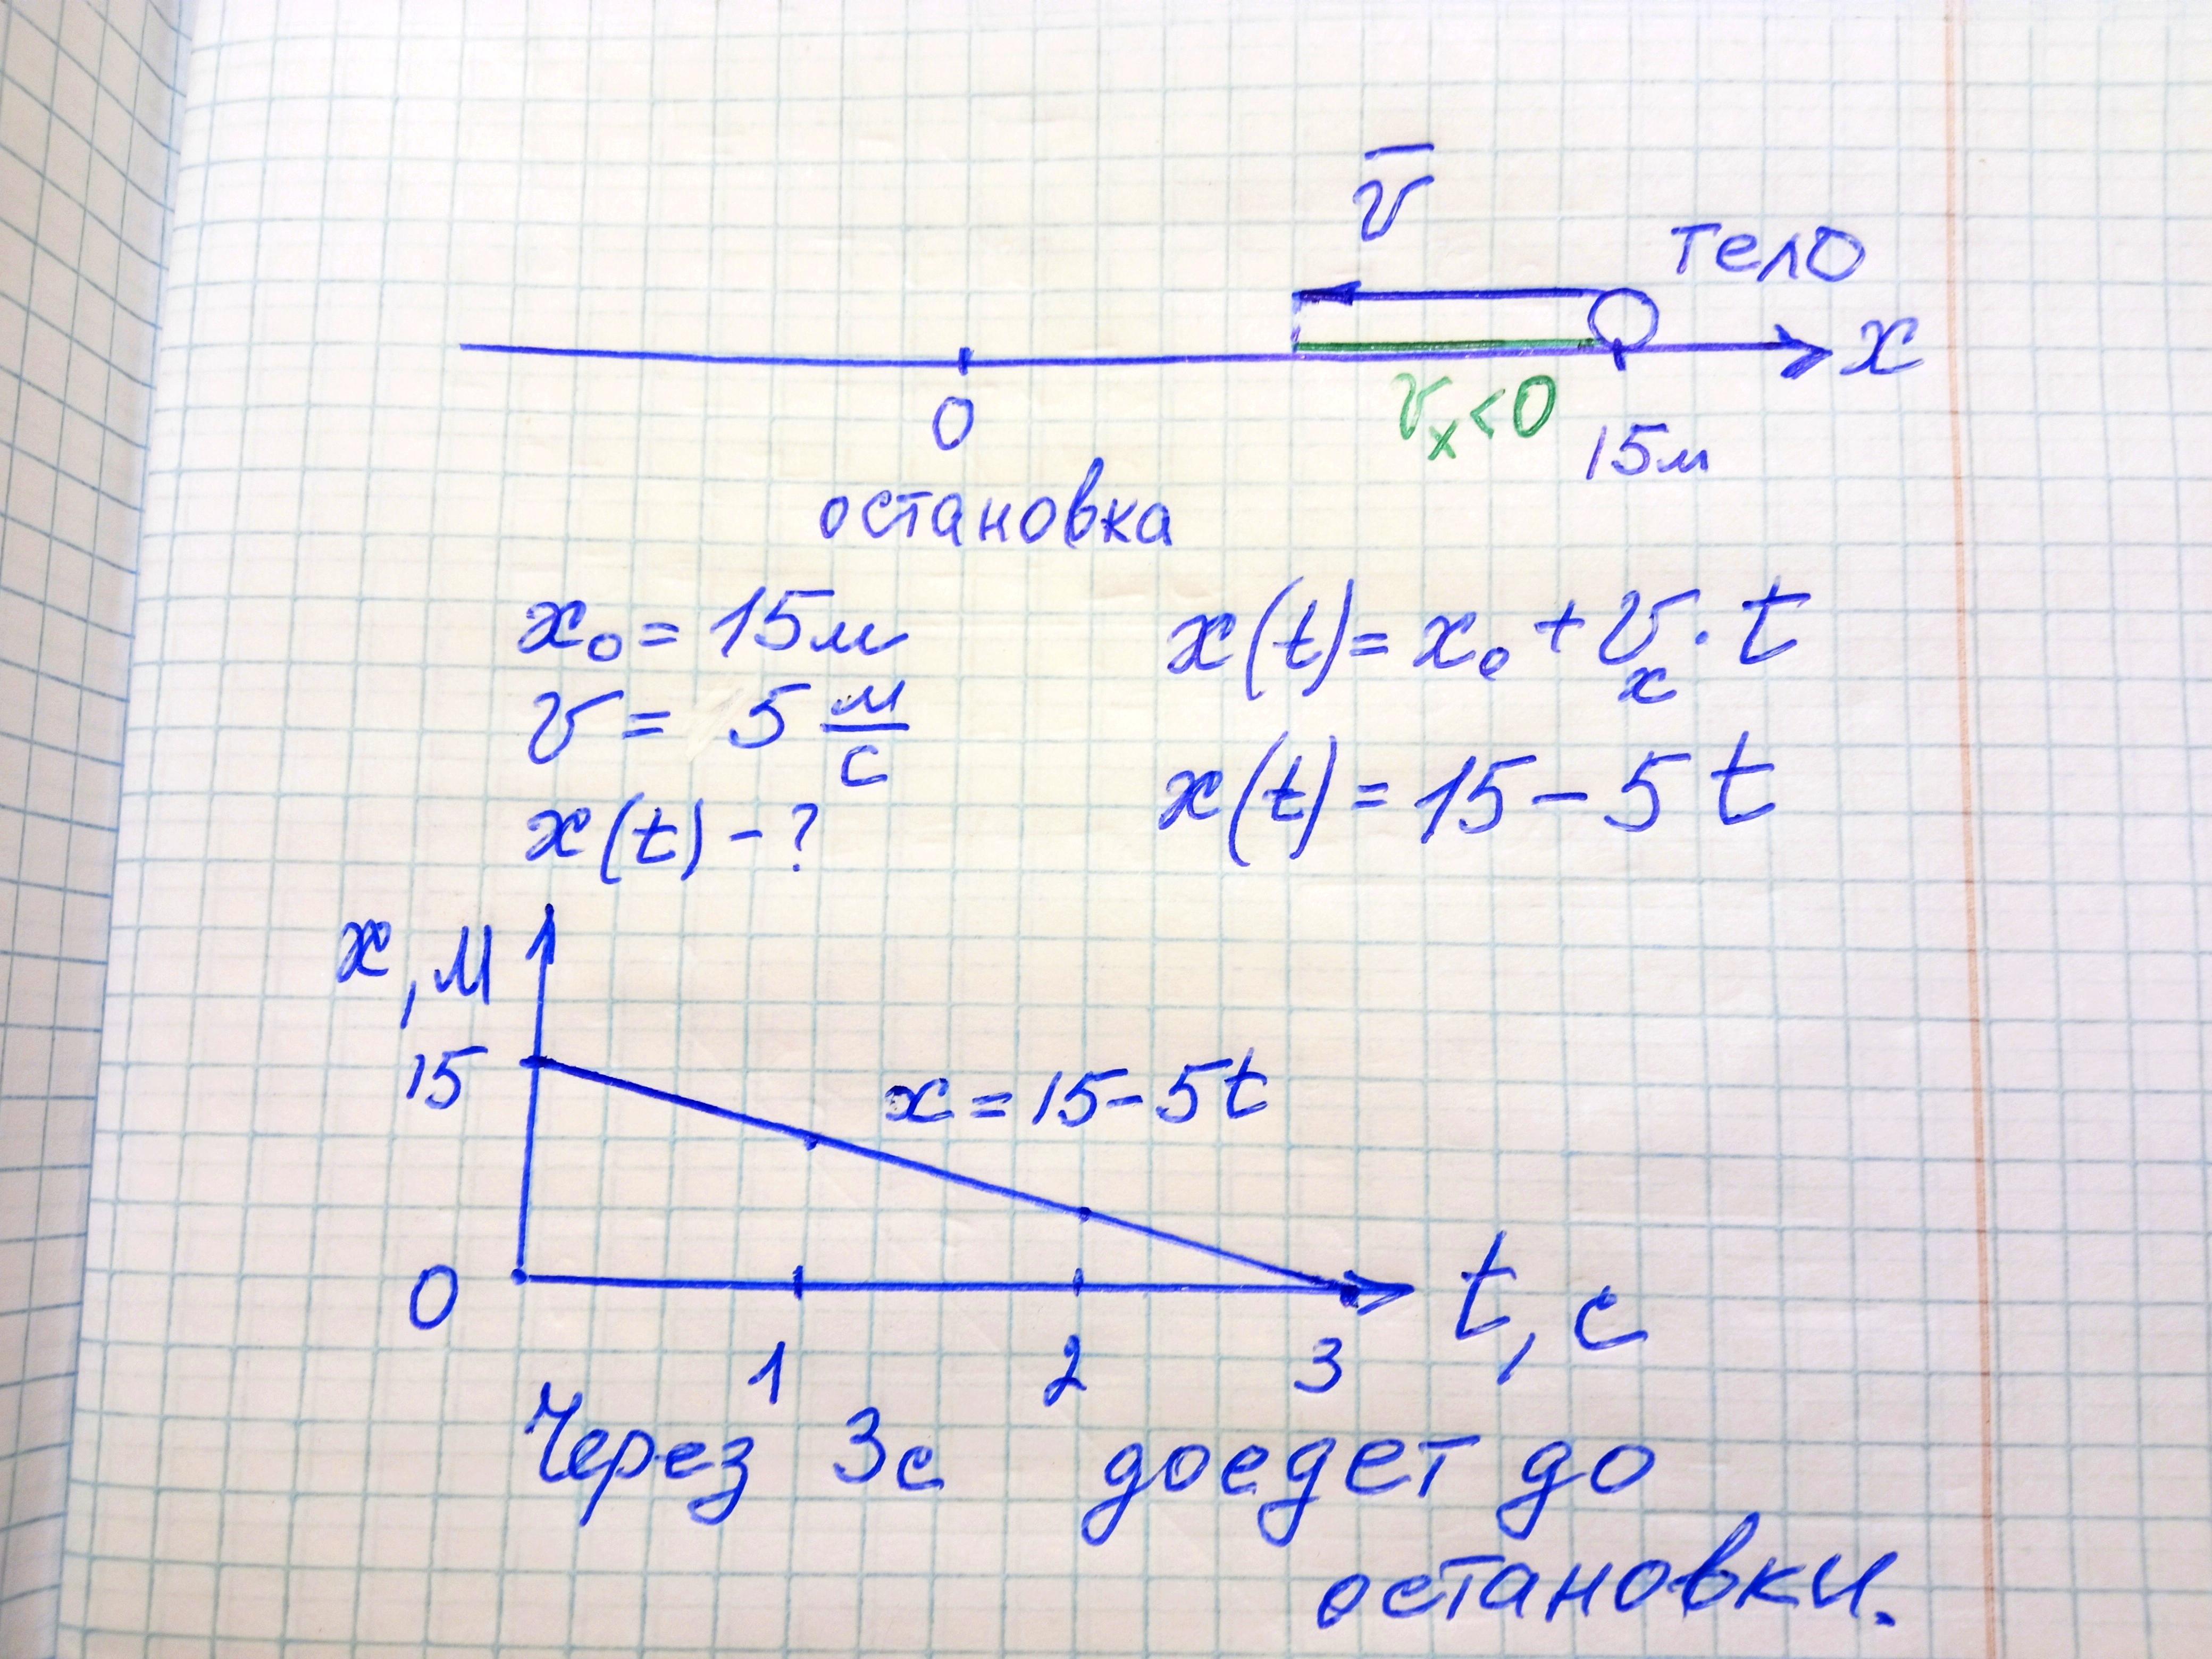 v̄
тело
x
0
vₓ<0
15м
остановка
x₀ = 15м
x(t) = x₀ + vₓ · t
v = 5 м/с
x(t) = 15 - 5t
x(t) - ?
x, м
15
x = 15 - 5t
0
t, с
1 2 3
Через 3с доедет до
остановки.